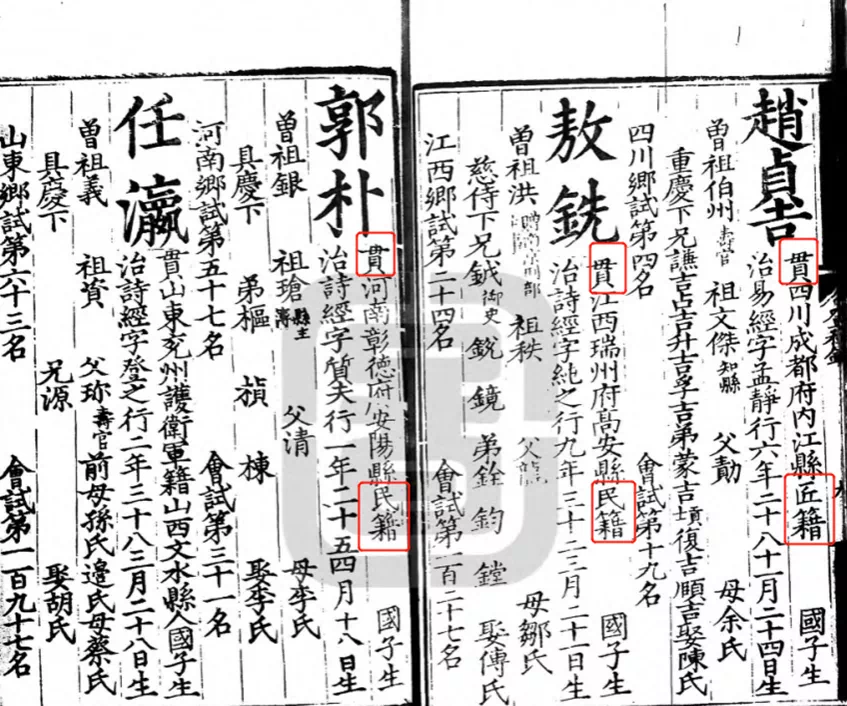 趙貞吉
貫四川成都府内江縣匠籍 國子生
治易經字孟靜行六年二十八十一月二十四日生
曾祖伯州壽官 祖文傑知縣 父勣 母余氏
重慶下兄譙吉占吉升吉孚吉弟蒙吉復吉頤吉娶陳氏
四川鄉試第四名 會試第十九名
敖銑
貫江西瑞州府高安縣民籍 國子生
治詩經字純之行九年三十二三月二十一日生
曾祖洪 祖秩 父龍 母鄒氏
慈侍下兄鉞御史 銳 鏡 弟銓 鈞 鏜 娶傅氏
江西鄉試第二十四名 會試第一百二十七名
郭朴
貫河南彰德府安陽縣民籍 國子生
治詩經字質夫行一年二十五四月十八日生
曾祖銀 祖瑲縣主簿 父清 母李氏
具慶下 弟樞 禎 棟 娶李氏
河南鄉試第五十七名 會試第三十一名
任瀛
貫山東兖州護衛軍籍山西文水縣人國子生
治詩經字登之行二年三十八三月二十八日生
曾祖義 祖質 父珎壽官 前母孫氏邉氏母蔡氏
具慶下 兄源 娶胡氏
山東鄉試第六十三名 會試第一百九十七名